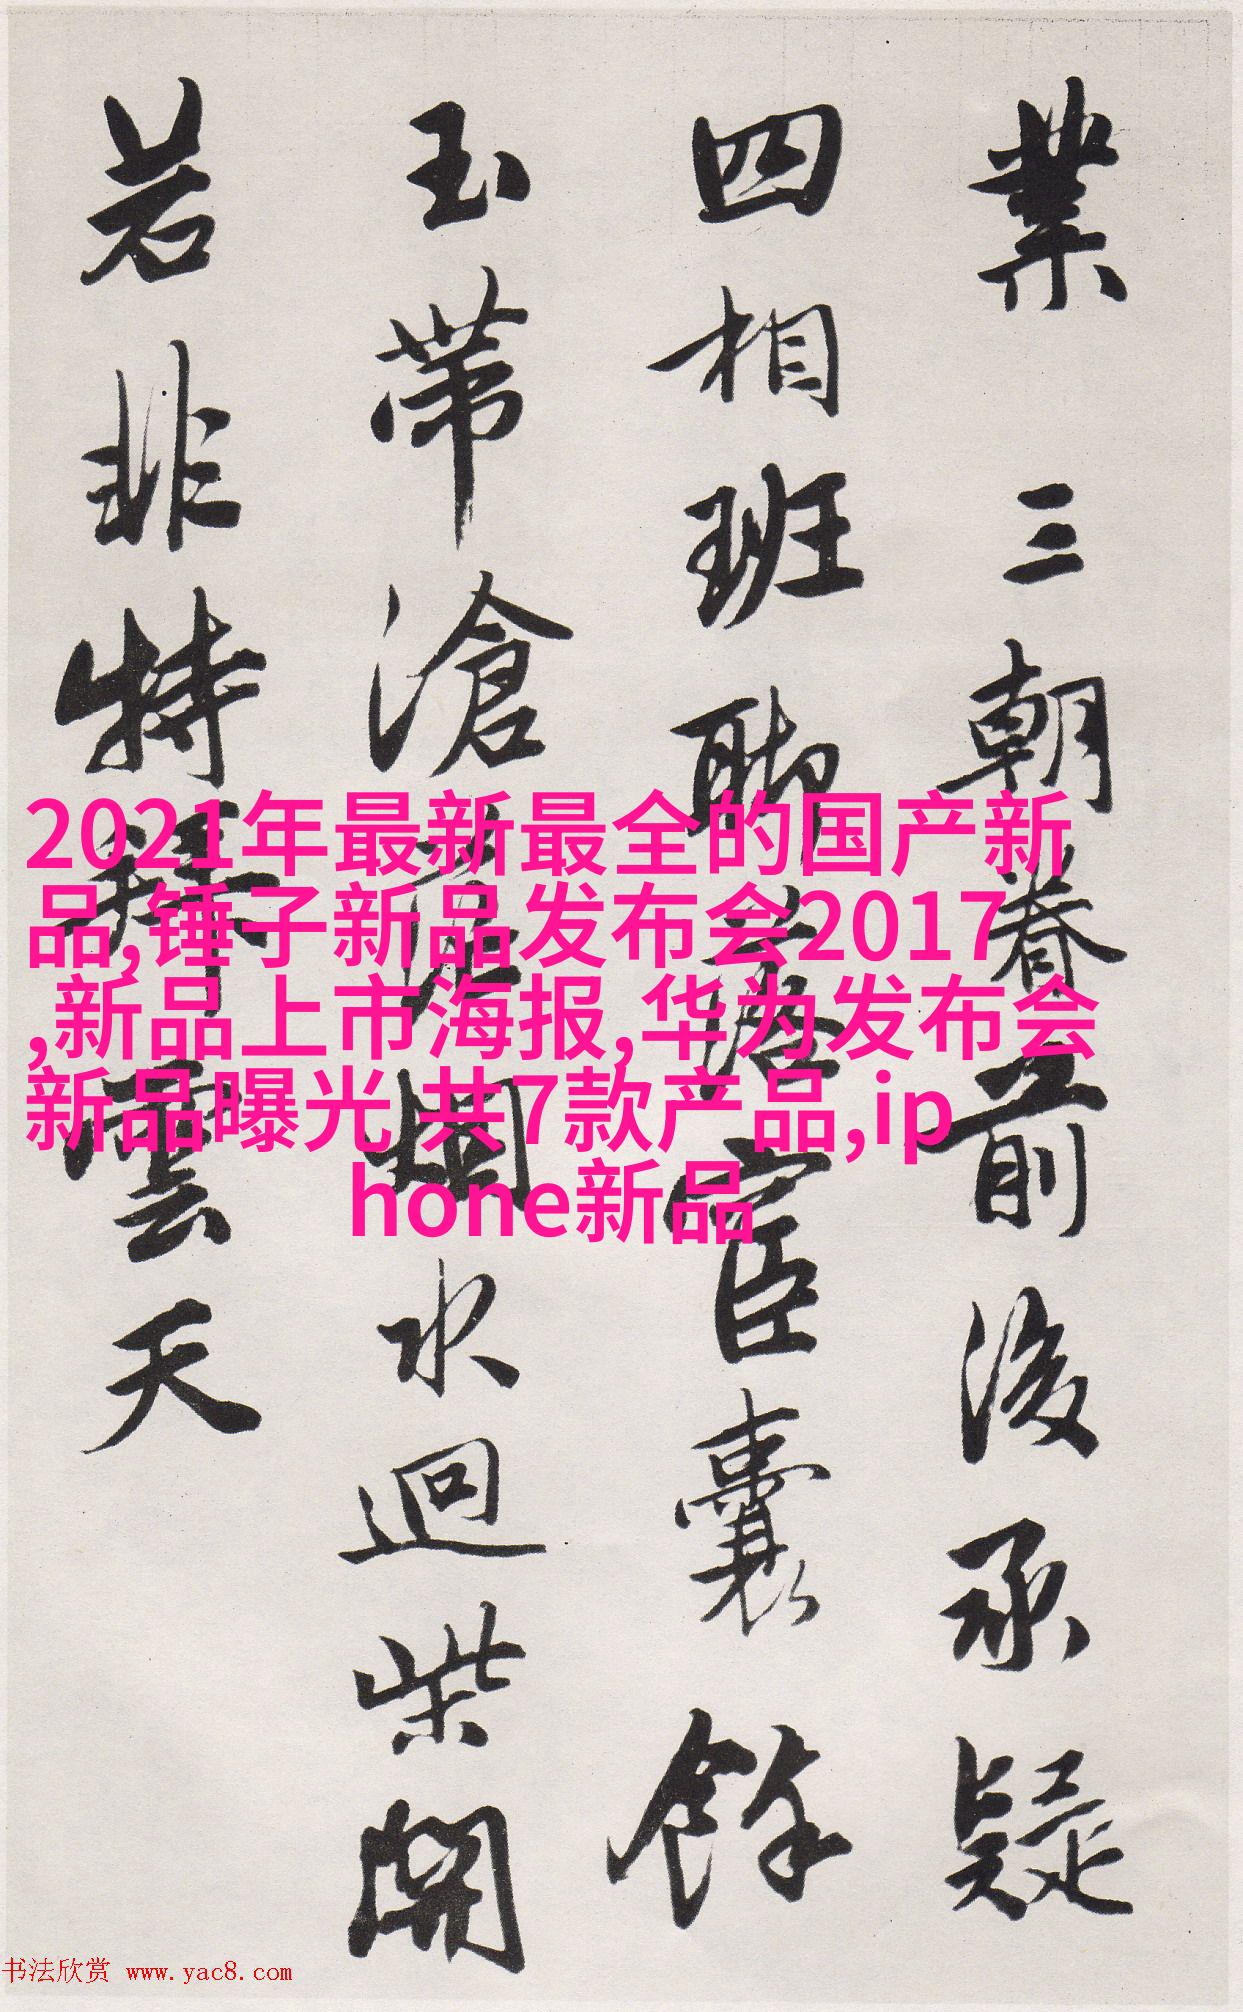 業 三朝眷前後承疑
四相班聊落宦囊餘
玉帶滄茫烟水迴柴關
若非特拜雲天
2021年最新最全的国产新
品,锤子新品发布会2017
,新品上市海报,华为发布会
新品曝光 共7款产品,ip
hone新品
书法欣赏 www.yac8.com